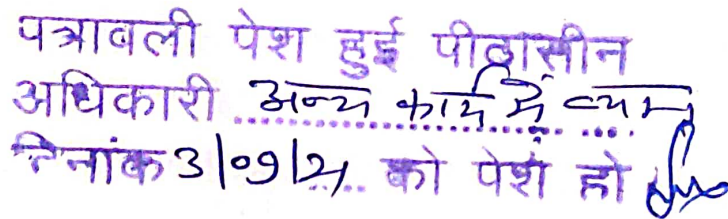 पत्रावली पेश हुई पीठासीन
अधिकारी अन्य कार्य में व्यस्त
दिनांक 3/09/21 को पेश हो